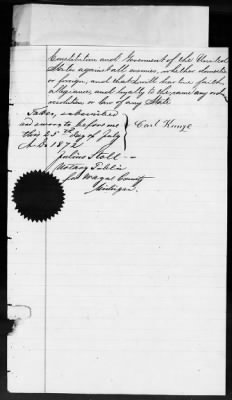 Constitution and Government of the United
States against all enemies, whether domestic
or foreign, and that I will bear true faith
allegiance, and loyalty to the same any ord
resolution or law of any State
Taken, subscribed
and sworn to before me
this 25th day of July
A.D. 1872
Carl Kunze
Julius Stoll
Notary Public
for Wayne County
Michigan